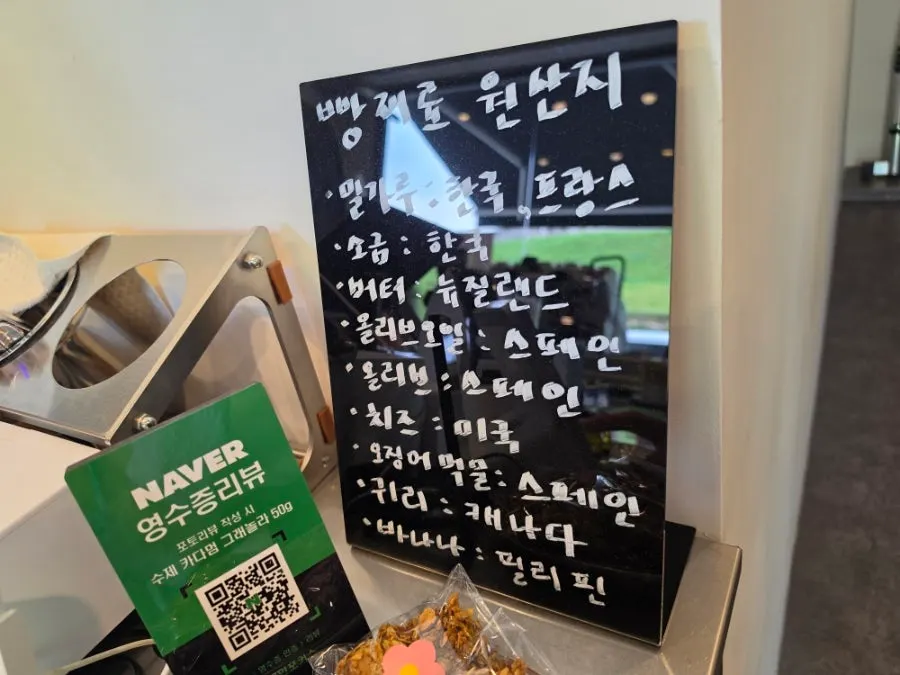 빵재료 원산지
· 밀가루 : 한국, 프랑스
· 소금 : 한국
· 버터 : 뉴질랜드
· 올리브오일 : 스페인
· 올리브 : 스페인
· 치즈 : 미국
· 오징어먹물 : 스페인
· 귀리 : 캐나다
· 바나나 : 필리핀
NAVER
영수증리뷰
포토리뷰 작성 시
수제 카다멈 그래놀라 50g